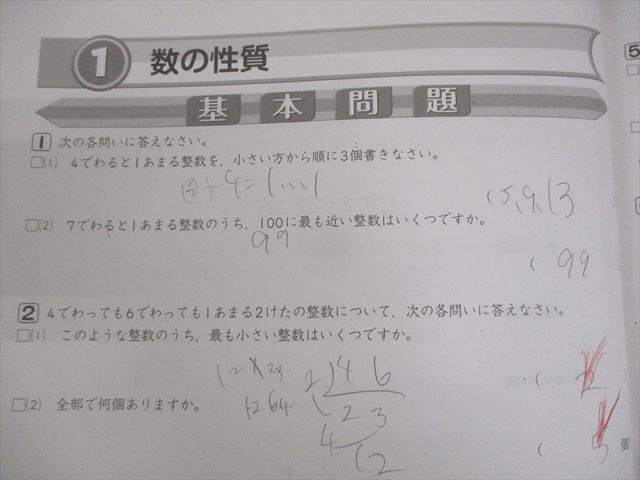 1 数の性質
基本問題
5
1 次の各問いに答えなさい。
□(1) 4でわると1あまる整数を、小さい方から順に3個書きなさい。
(5,9,13
□(2) 7でわると1あまる整数のうち、100に最も近い整数はいくつですか。
99
( 99
2 4でわっても6でわっても1あまる2けたの整数について、次の各問いに答えなさい。
□(1) このような整数のうち、最も小さい整数はいくつですか。
2)46
23
12
□(2) 全部で何個ありますか。
( 個